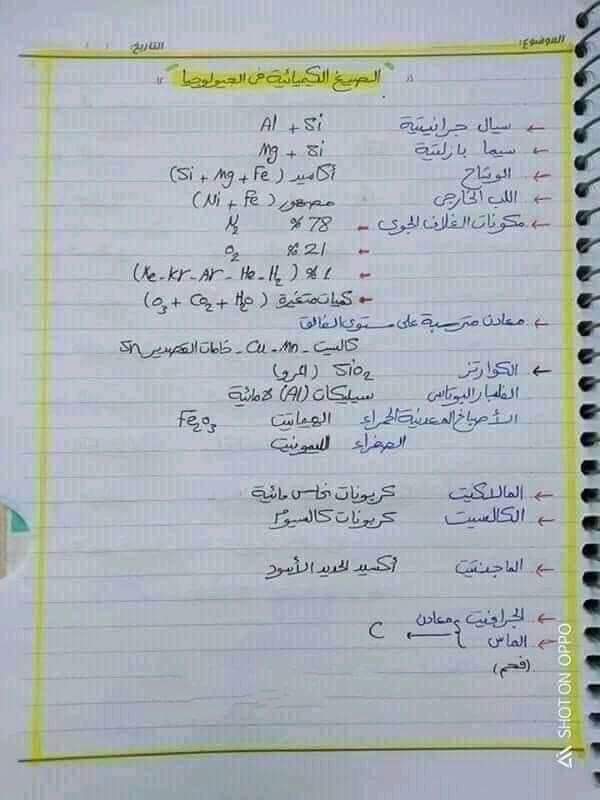 الموضوع: التاريخ: / /
" الصيغ الكيميائية في الجيولوجيا "
← سيال جرانيتية Al + Si
← سيما بازلتية Mg + Si
← الوشاح أكاسيد (Si + Mg + Fe)
← اللب الخارجي مصهور (Ni + Fe)
← مكونات الغلاف الجوي ← 78 % N₂
← 21 % O₂
← 1 % (Ne - Kr - Ar - He - H₂)
← كميات متغيرة (O₃ + CO₂ + H₂O)
← معادن مترسبة على مستوى الفالق
كالسيت - Mn - Cu - خامات القصدير Sn
← الكوارتز SiO₂ (المرو)
الفلسبار البوتاسي سيليكات (Al) لامائية
الأصباغ المعدنية الحمراء الهيماتيت Fe₂O₃
الصفراء الليمونيت
← المالاكيت كربونات نحاس مائية
← الكالسيت كربونات كالسيوم
← الماجنتيت أكسيد الحديد الأسود
← الجرافيت } معادن ← C
← الماس
(فحم)
SHOT ON OPPO